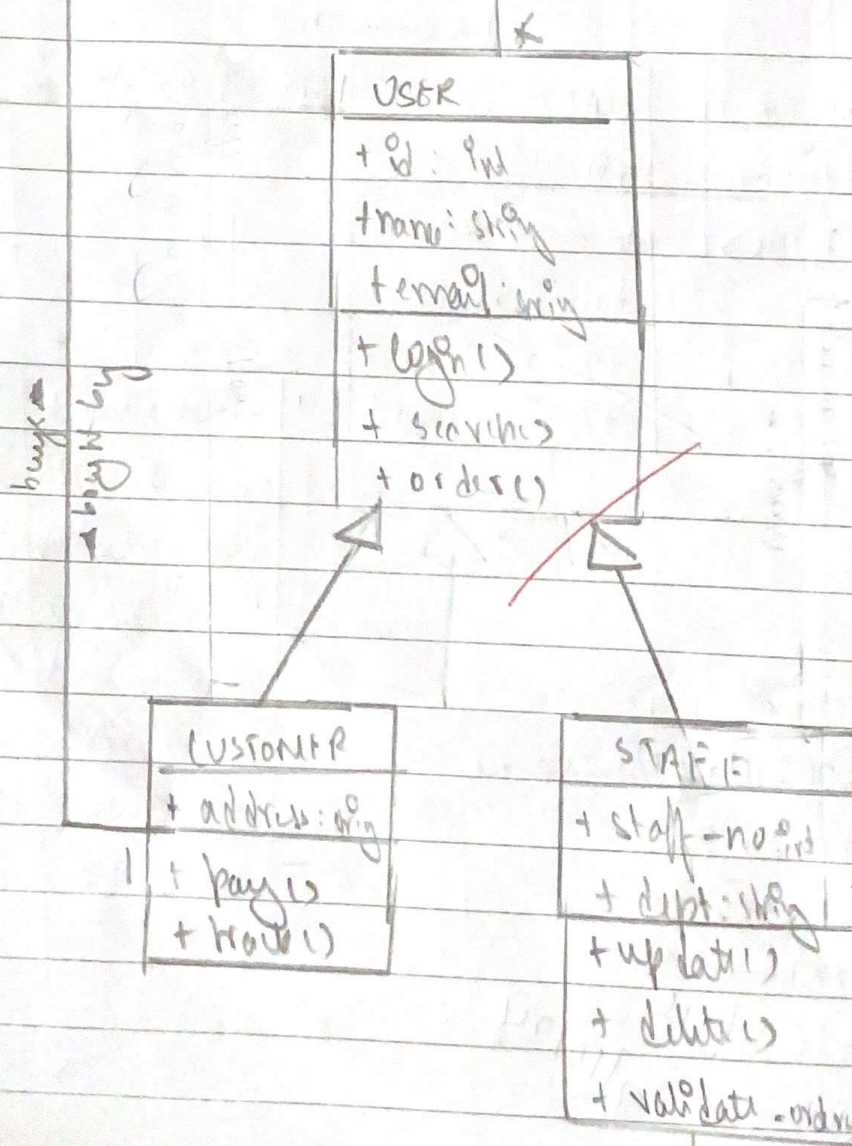 *
USER
+ id : int
+name : string
+email : string
+ login()
+ search()
+ order()
buys
bought by
CUSTOMER
+ address : string
1
+ pay()
STAFF
+ staff-no : int
+ dept : string
+update()
+ delete()
+ validate-order